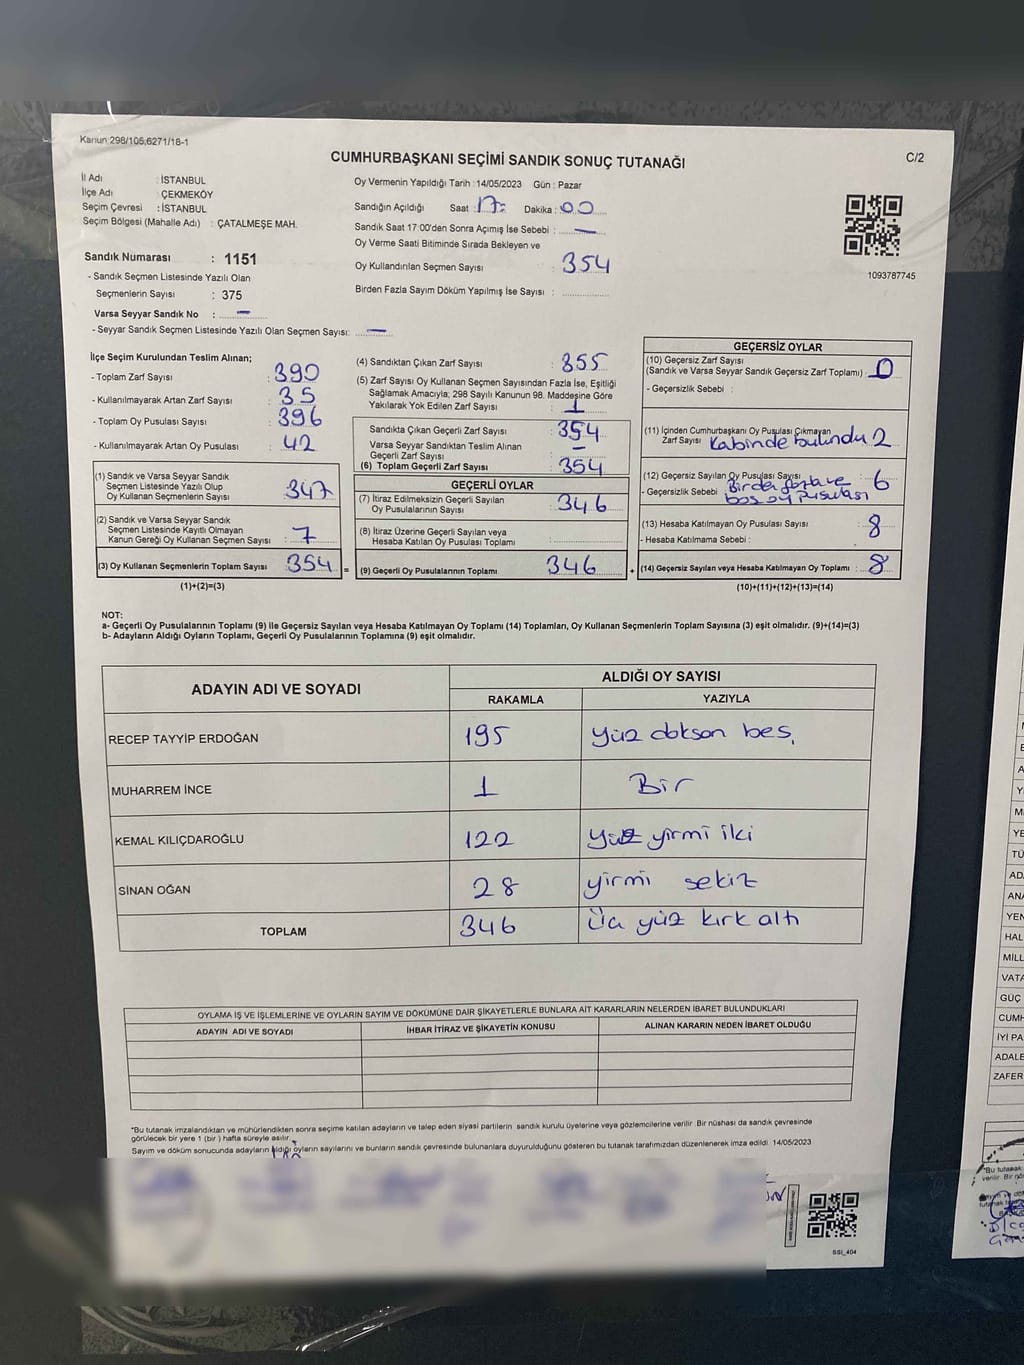 Kanun 298/105,6271/18-1
CUMHURBAŞKANI SEÇİMİ SANDIK SONUÇ TUTANAĞI
C/2
İl Adı : İSTANBUL
İlçe Adı : ÇEKMEKÖY
Seçim Çevresi : İSTANBUL
Seçim Bölgesi (Mahalle Adı) : ÇATALMEŞE MAH.
Sandık Numarası : 1151
- Sandık Seçmen Listesinde Yazılı Olan
Seçmenlerin Sayısı : 375
Varsa Seyyar Sandık No : —
- Seyyar Sandık Seçmen Listesinde Yazılı Olan Seçmen Sayısı: —
Oy Vermenin Yapıldığı Tarih : 14/05/2023 Gün : Pazar
Sandığın Açıldığı Saat : 17: Dakika : 00
Sandık Saat 17:00'den Sonra Açımış İse Sebebi : —
Oy Verme Saati Bitiminde Sırada Bekleyen ve
Oy Kullandırılan Seçmen Sayısı : 354
Birden Fazla Sayım Döküm Yapılmış İse Sayısı :
1093787745
İlçe Seçim Kurulundan Teslim Alınan;
- Toplam Zarf Sayısı : 390
- Kullanılmayarak Artan Zarf Sayısı : 35
- Toplam Oy Pusulası Sayısı : 396
- Kullanılmayarak Artan Oy Pusulası : 42
(1) Sandık ve Varsa Seyyar Sandık
Seçmen Listesinde Yazılı Olup
Oy Kullanan Seçmenlerin Sayısı : 347
(2) Sandık ve Varsa Seyyar Sandık
Seçmen Listesinde Kayıtlı Olmayan
Kanun Gereği Oy Kullanan Seçmen Sayısı : 7
(3) Oy Kullanan Seçmenlerin Toplam Sayısı : 354
(1)+(2)=(3)
(4) Sandıktan Çıkan Zarf Sayısı : 355
(5) Zarf Sayısı Oy Kullanan Seçmen Sayısından Fazla İse, Eşitliği
Sağlamak Amacıyla; 298 Sayılı Kanunun 98. Maddesine Göre
Yakılarak Yok Edilen Zarf Sayısı : 1
Sandıkta Çıkan Geçerli Zarf Sayısı : 354
Varsa Seyyar Sandıktan Teslim Alınan
Geçerli Zarf Sayısı : —
(6) Toplam Geçerli Zarf Sayısı : 354
GEÇERLİ OYLAR
(7) İtiraz Edilmeksizin Geçerli Sayılan
Oy Pusulalarının Sayısı : 346
(8) İtiraz Üzerine Geçerli Sayılan veya
Hesaba Katılan Oy Pusulası Toplamı :
= (9) Geçerli Oy Pusulalarının Toplamı : 346 +
GEÇERSİZ OYLAR
(10) Geçersiz Zarf Sayısı
(Sandık ve Varsa Seyyar Sandık Geçersiz Zarf Toplamı) : 0
- Geçersizlik Sebebi :
(11) İçinden Cumhurbaşkanı Oy Pusulası Çıkmayan
Zarf Sayısı : Kabinde bulundu 2
(12) Geçersiz Sayılan Oy Pusulası Sayısı : 6
- Geçersizlik Sebebi : Birden fazla ve
boş oy pusulası
(13) Hesaba Katılmayan Oy Pusulası Sayısı : 8
- Hesaba Katılmama Sebebi :
(14) Geçersiz Sayılan veya Hesaba Katılmayan Oy Toplamı : 8
(10)+(11)+(12)+(13)=(14)
NOT:
a- Geçerli Oy Pusulalarının Toplamı (9) ile Geçersiz Sayılan veya Hesaba Katılmayan Oy Toplamı (14) Toplamları, Oy Kullanan Seçmenlerin Toplam Sayısına (3) eşit olmalıdır. (9)+(14)=(3)
b- Adayların Aldığı Oyların Toplamı, Geçerli Oy Pusulalarının Toplamına (9) eşit olmalıdır.
ADAYIN ADI VE SOYADI
ALDIĞI OY SAYISI
RAKAMLA YAZIYLA
RECEP TAYYİP ERDOĞAN 195 yüz doksan beş
MUHARREM İNCE 1 Bir
KEMAL KILIÇDAROĞLU 122 yüz yirmi iki
SİNAN OĞAN 28 yirmi sekiz
TOPLAM 346 Üç yüz kırk altı
OYLAMA İŞ VE İŞLEMLERİNE VE OYLARIN SAYIM VE DÖKÜMÜNE DAİR ŞİKAYETLERLE BUNLARA AİT KARARLARIN NELERDEN İBARET BULUNDUKLARI
ADAYIN ADI VE SOYADI
İHBAR İTİRAZ VE ŞİKAYETİN KONUSU
ALINAN KARARIN NEDEN İBARET OLDUĞU
*Bu tutanak imzalandıktan ve mühürlendikten sonra seçime katılan adayların ve talep eden siyasi partilerin sandık kurulu üyelerine veya gözlemcilerine verilir. Bir nüshası da sandık çevresinde
görülecek bir yere 1 (bir) hafta süreyle asılır.
Sayım ve döküm sonucunda adayların aldığı oyların sayılarını ve bunların sandık çevresinde bulunanlara duyurulduğunu gösteren bu tutanak tarafımızdan düzenlenerek imza edildi. 14/05/2023
SSI_404
YE
TÜ
AD
ANA
YEN
HAL
MİLL
VATA
GÜÇ
CUMH
İYİ PA
ADALE
ZAFER
*Bu tutanak
verilir. Bir nüs